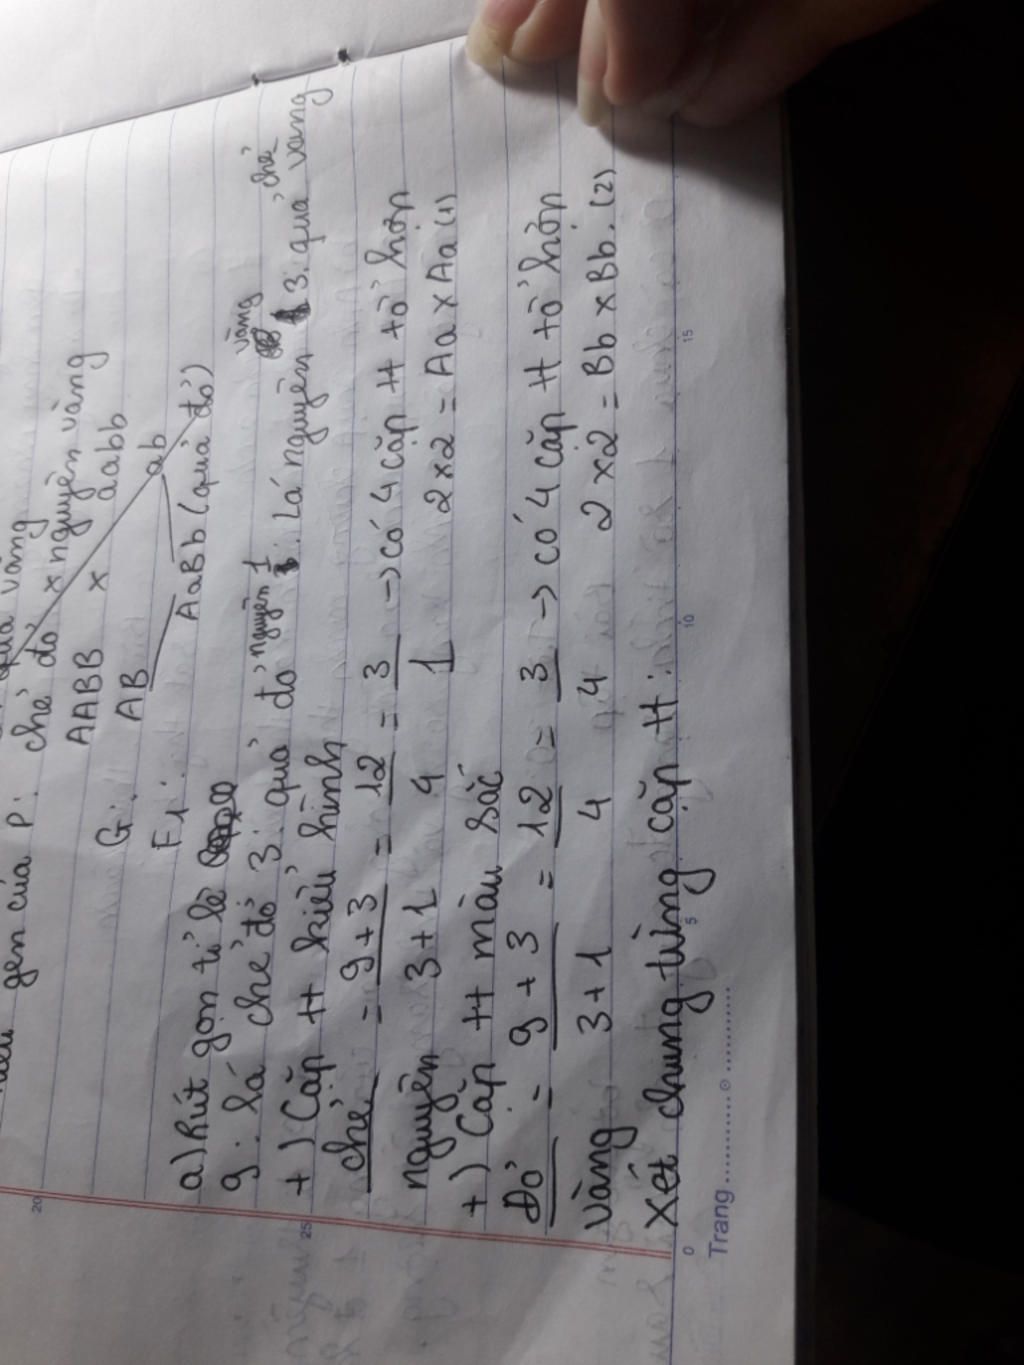 gen của P:
chẻ đỏ x nguyên vàng
AABB x aabb
G: AB ab
F1: AaBb (quả đỏ)
a) Rút gọn tỉ lệ
vàng
9: lá chẻ đỏ 3: quả đỏ nguyên 1: Lá nguyên 3: quả vàng chẻ
+) Cặp tt kiểu hình
chẻ = 9+3 = 12 = 3 -> có 4 cặp tt tổ hợp
nguyên 3+1 4 1 2x2 = Aa x Aa (1)
+) Cặp tt màu sắc
Đỏ = 9+3 = 12 = 3 -> có 4 cặp tt tổ hợp
vàng 3+1 4 4 2x2 = Bb x Bb. (2)
xét chung từng cặp tt:
Trang
20
25
0 5 10 15